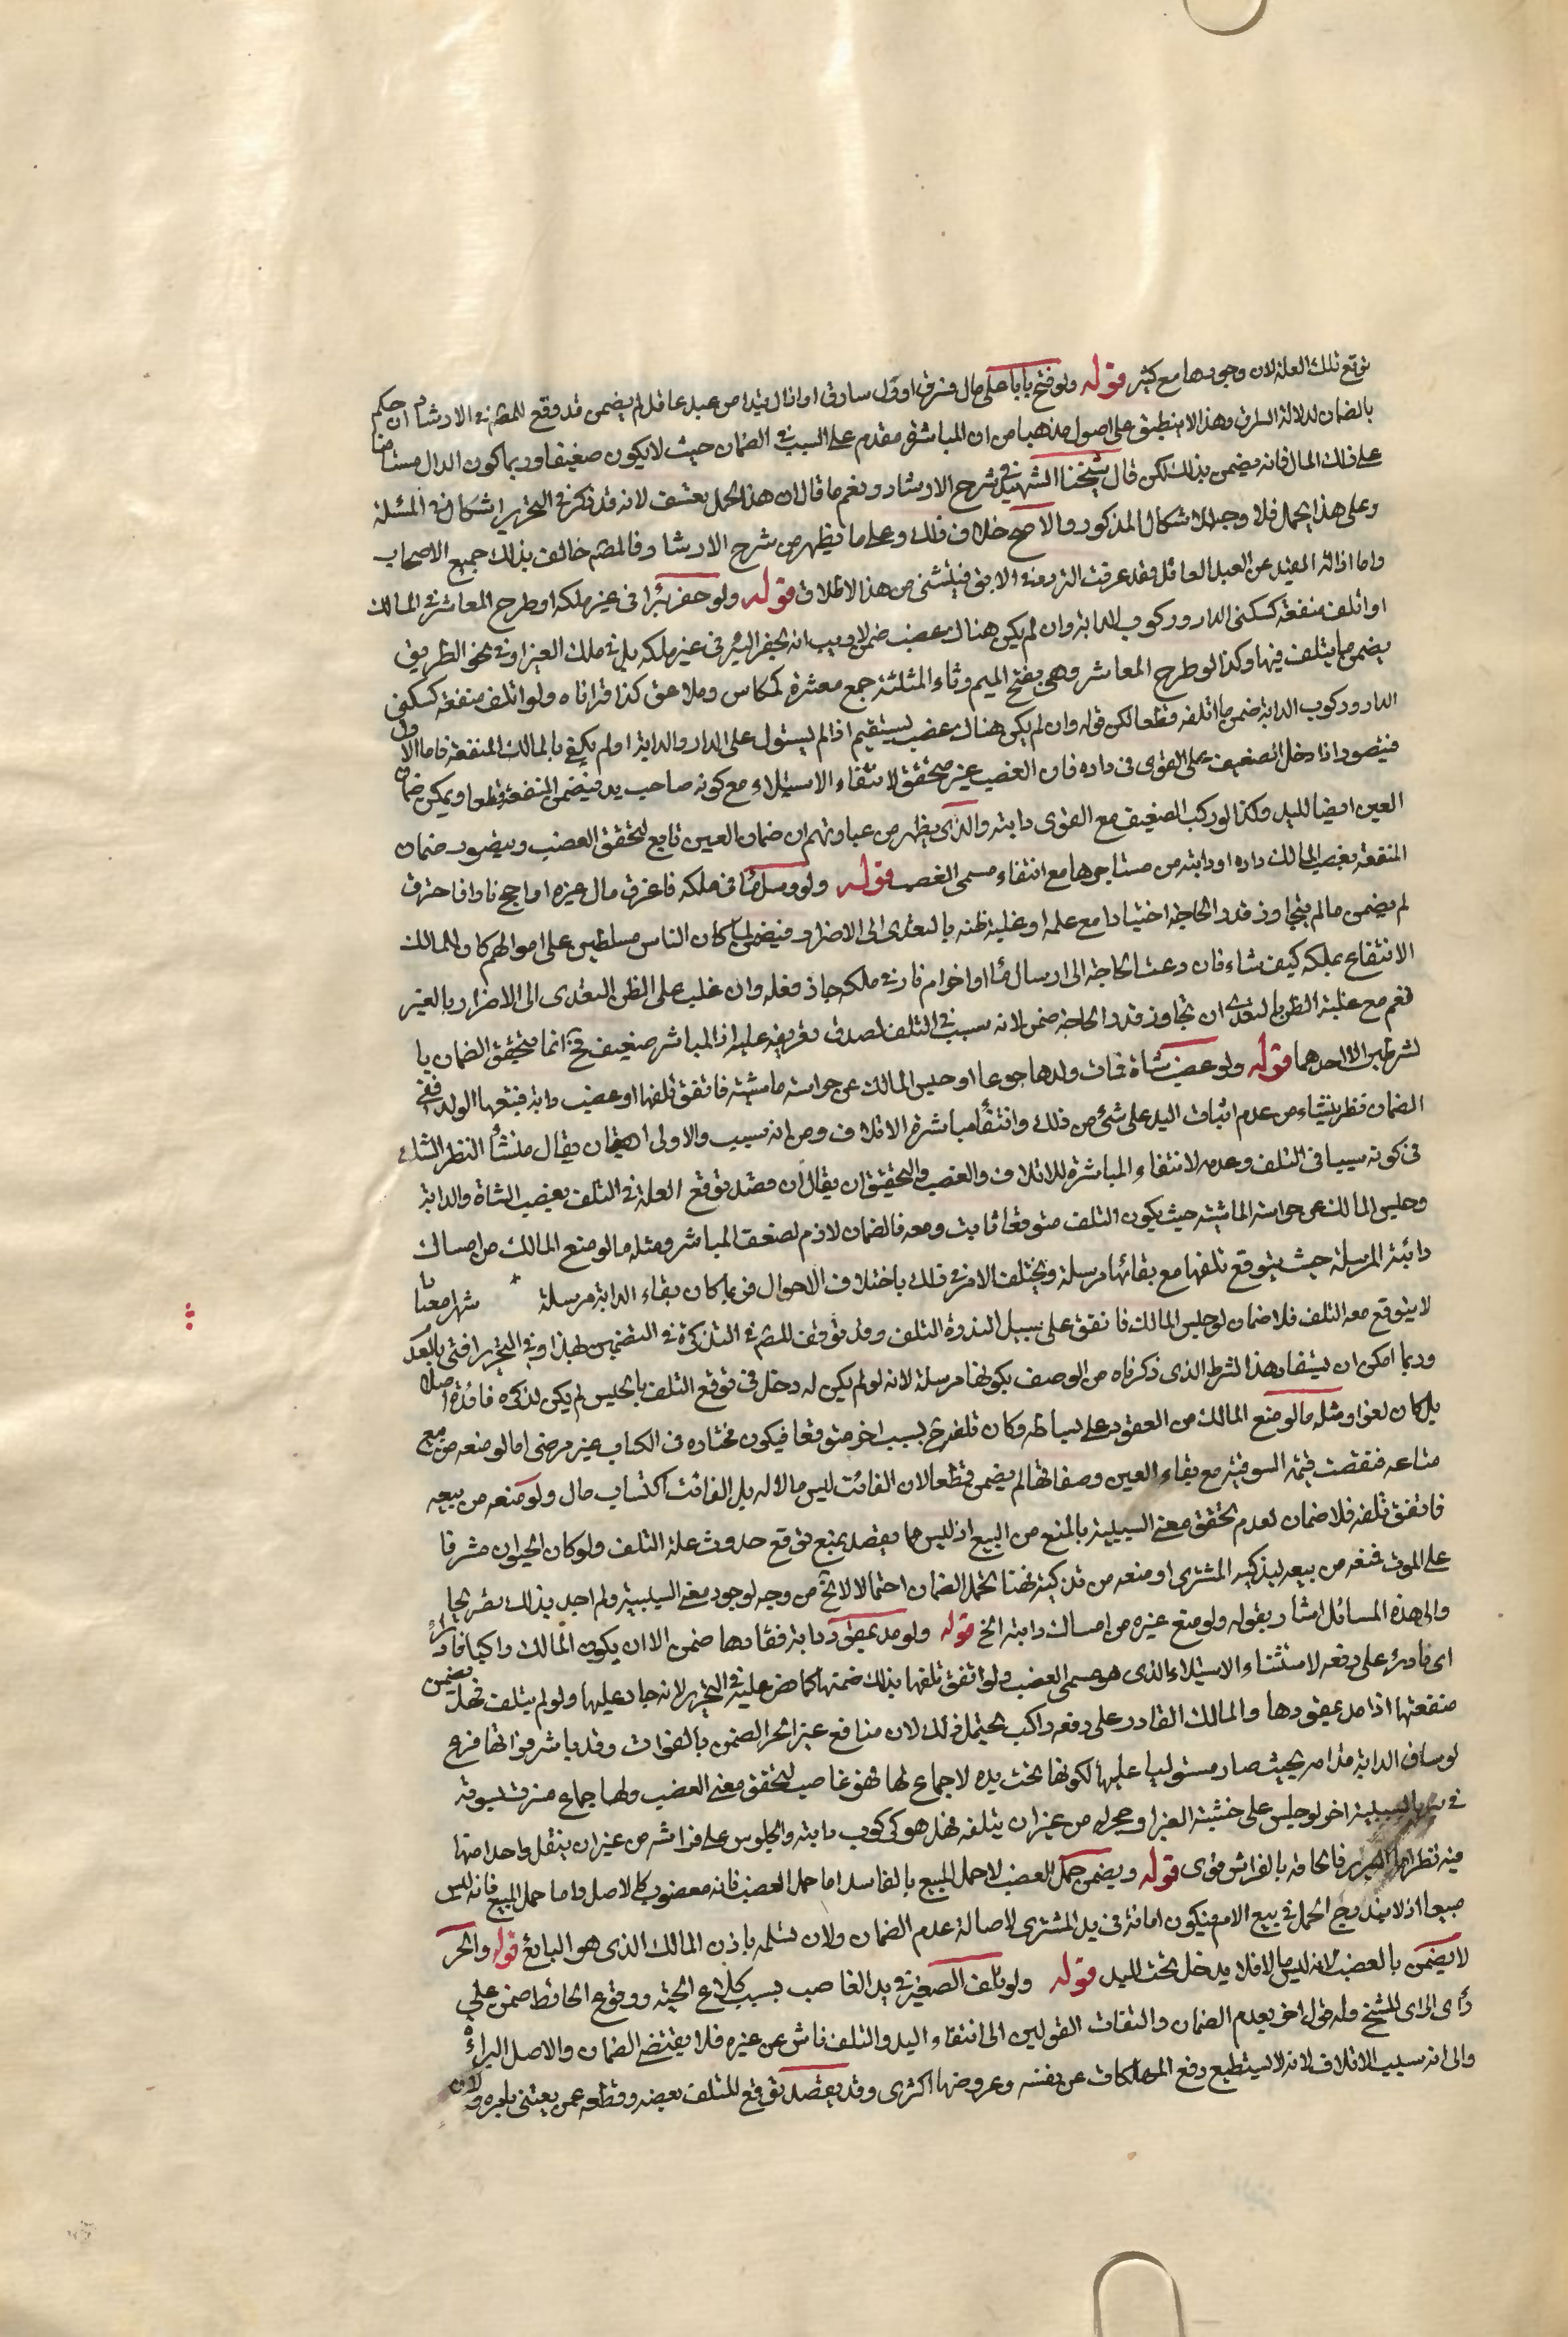 توقع تلك العلة لان وجودها مع كثير قوله ولو فتح بابا على مال فسرق او دل سارق او ازال قيدا من عبد عاقل لم يضمن قد وقع للمصنف في الارشاد ان حكم
بالضمان لدلالة السارق وهذا لا ينطبق على اصول مذهبنا من ان المباشر مقدم على السبب في الضمان حيث لا يكون ضعيفا وربما كون الدال مستامنا
على ذلك المال فانه يضمن بذلك لكن قال شيخنا الشهيد في شرح الارشاد ونعم ما قال ان هذا الحمل تعسف لانه قد ذكر في التحرير اشكال في المسئلة
وعلى هذا الحمل فلا وجه للاشكال المذكور والاصح خلاف ذلك وعلى ما يظهر من شرح الارشاد فالمصنف خالف بذلك جميع الاصحاب
واما ازالة القيد عن العبد العاقل فقد عرفت التردد في الابق فيستثنى من هذا الاطلاق قوله ولو حفر بئرا في غير ملكه او طرح المعاثر في المسالك
او اتلف منفعة كسكنى الدار وركوب الدابة وان لم يكن هناك غصب ضمن لا ريب انه بحفر البئر في غير ملكه بل في ملك الغير او في نحو الطريق
يضمن ما يتلف فيها وكذا لو طرح المعاثر وهي بفتح الميم وثاء المثلثة جمع معثرة كمكاس وملاعق كذا قراناه ولو اتلف منفعة كسكنى
الدار وركوب الدابة ضمن ما اتلفه قطعا لكن قوله وان لم يكن هناك غصب يستقيم اذا لم يستول على الدار والدابة او لم يكف بالمالك المنفعة فاما الاول
فيتصور اذا دخل الضعيف على القوى في داره فان الغصب غير متحقق لانتفاء الاستيلاء مع كونه صاحب يد فيضمن المنفعة قطعا ويمكن ضمان
العين ايضا لليد وكذا لو ركب الضعيف مع القوى دابته والذي يظهر من عباراتهم ان ضمان العين تابع لتحقق الغصب ويتصور ضمان
المنفعة بغصب المالك داره او دابته من مستاجرها مع انتفاء مسمى الغصب قوله ولو ارسل ماء في ملكه فاغرق مال غيره او اجج نارا فاحترق
لم يضمن ما لم يتجاوز قدر الحاجة اختيارا مع علمه او غلبة ظنه بالتعدى الى الاضرار فيضمن لما كان الناس مسلطين على اموالهم كان للمالك
الانتفاع بملكه كيف شاء فان دعت الحاجة الى ارسال ماء او اضرام نار في ملكه جاز فعله وان غلب على الظن التعدى الى الاضرار بالغير
نعم مع غلبة الظن بالتعدى ان تجاوز قدر الحاجة ضمن لانه سبب في التلف لصدق تعريفه عليه اذ المباشر ضعيف فح انما يتحقق الضمان با
لشرطين لا احدهما قوله ولو غصب شاة فمات ولدها جوعا او حبس المالك عن حراسة ماشيته فاتفق تلفها او غصب دابة فتبعها الولد ففي
الضمان نظر ينشاء من عدم اثبات اليد على شئ من ذلك وانتفاء مباشرة الاتلاف ومن انه سبب والاولى ان يقال منشأ النظر الشك
في كونه سببا في التلف وعدمه لانتفاء المباشرة للاتلاف والغصب والتحقيق ان يقال ان قصد توقع العلة في التلف بغصب الشاة والدابة
وحبس المالك عن حراسة الماشية حيث يكون التلف متوقعا ثابت ومعه فالضمان لازم لضعف المباشر ومثله ما لو منع المالك من امساك
دابته المرسلة حيث يتوقع تلفها مع بقائها مرسلة ويختلف الامر في ذلك باختلاف الاحوال فربما كان بقاء الدابة مرسلة شهر معتا دا
لا يتوقع معه التلف فلا ضمان لو حبس المالك فاتفق على سبيل الندرة التلف وقد توقف المصنف في التذكرة في التضمين بهذا وفي التحرير افتى بالعدم
وربما امكن ان يستفاد هذا الشرط الذي ذكرناه من الوصف بكونها مرسلة لانه لو لم يكن له دخل في توقع التلف بالحبس لم يكن لذكره فائدة اصلا
بل كان لغوا ومثله ما لو منع المالك من القعود على بساطه وكان تلفه ح بسبب اخر متوقعا فيكون مختاره في الكتاب غير مرضى اما لو منعه من بيع
متاعه فنقصت قيمته السوقية مع بقاء العين وصفاتها لم يضمن قطعا لان الفائت ليس مالا له بل الفائت اكتساب مال ولو منعه من بيعه
فاتفق تلفه فلا ضمان لعدم تحقق معنى السببية بالمنع من البيع اذ ليس مما يقصد بمنع توقع حدوث علة التلف ولو كان الحيوان مشرفا
على الموت فمنعه من بيعه ليذكيه المشترى او منعه من تذكيته فهنا يحتمل الضمان احتمالا لا يخ من وجه لوجود معنى السببية ولم اجد بذلك تصريحا
والى هذه المسائل اشار بقوله ولو منع غيره من امساك دابته الخ قوله ولو مد بمقود دابة فقادها ضمن الا ان يكون المالك راكبا قادرا
اى قادر على دفعه لاستثناء الاستيلاء الذى هو مسمى الغصب ولو اتفق تلفها بذلك ضمنها كما نص عليه في التحرير لانه جان عليها ولو لم يتلف فهل يضمن
منفعتها اذا مد بمقودها والمالك القادر على دفعه راكب يحتمل ذلك لان منافع غير الحر تضمن بالفوات وقد باشر فواتها فرع
لو ساق الدابة قدامه بحيث صار مستوليا عليها لكونها تحت يده لا جماح لها فهو غاصب لتحقق معنى الغصب ولها جماح فشردت بسوقه
في السببية اخر لو جلس على خشبة الغير او حجره من غير ان يتلفه فهل هو كركوب دابته والجلوس على فراشه من غير ان ينقل واحدا منها
فيه نظر فالحاقه بالفراش قوى قوله ويضمن حمل الغصب لا حمل المبيع بالفاسد اما حمل الغصب فانه مغصوب كالاصل واما حمل المبيع فانه ليس
مبيعا اذ لا يندرج الحمل في بيع الام فيكون امانة في يد المشترى لاصالة عدم الضمان ولان تسلمه باذن المالك الذى هو البائع قوله والحر
لا يضمن بالغصب لانه ليس مالا فلا يدخل تحت اليد قوله ولو تلف الصغير في يد الغاصب بسبب كلدغ الحية ووقوع الحائط ضمن على
رأى للشيخ وله قول اخر بعدم الضمان والتفات القولين الى انتفاء اليد والتلف ناش عن غيره فلا يقتضى الضمان والاصل البراءة
والى انه سبب الاتلاف لانه لا يستطيع دفع المهلكات عن نفسه وعروضها اكثرى وقد يقصد توقع المتلف بغصبه وقطعه عمن يعتنى بامره ولان